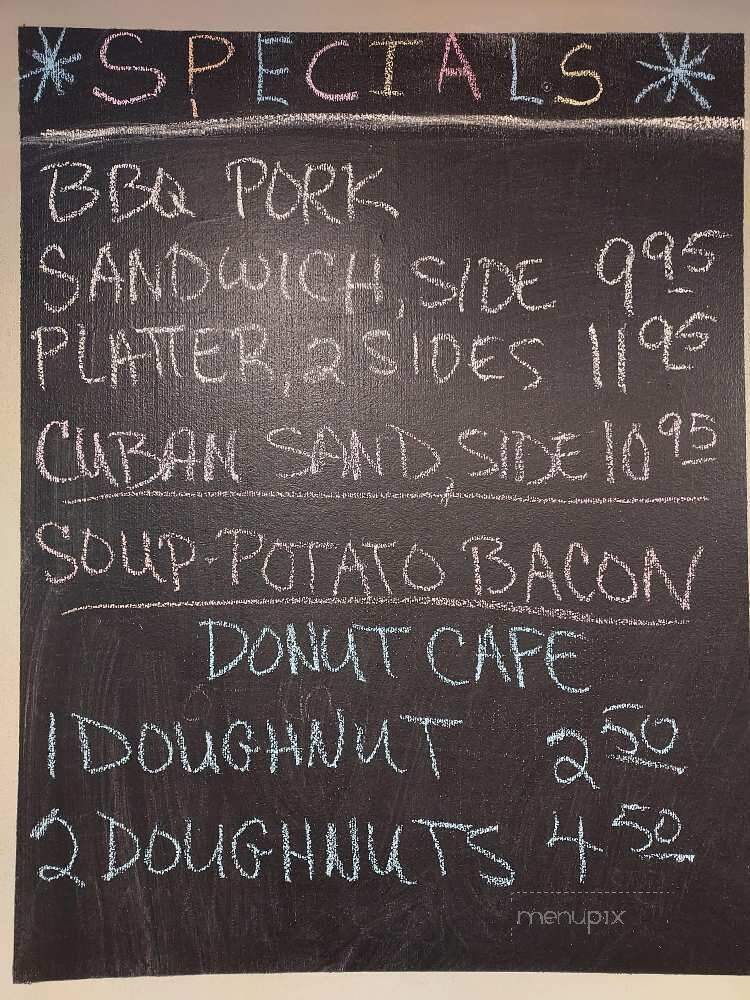 * SPECIALS *
BBQ PORK
SANDWICH, SIDE 9 95
PLATTER, 2 SIDES 11 95
CUBAN SAND, SIDE 10 95
SOUP-POTATO BACON
DONUT CAFE
1 DOUGHNUT 2 50
2 DOUGHNUTS 4 50
menupix